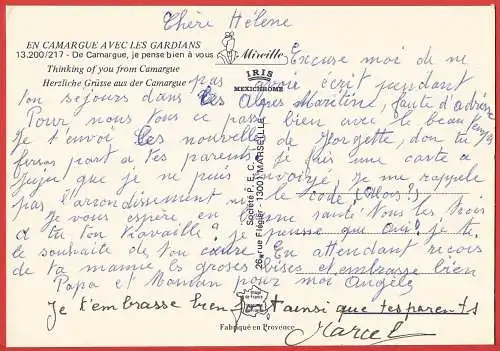 Chère Hélène
EN CAMARGUE AVEC LES GARDIANS
13.200/217 - De Camargue, je pense bien à vous
Mireille
Thinking of you from Camargue
Herzliche Grüsse aus der Camargue
IRIS
MEXICHROME
Excuse moi de ne
pas avoir écrit pendant
ton sejours dans les Alpes Maritine, faute d'adresse
Pour nous tous ce passe bien avec le beau temps
Je t'envoi les nouvelle de Georgette, don tu
feras part a tes parents. J'ai une carte a
Juju que je ne puis envoyé, Je me rappele
pas l'arrondissement ni le code (Alors!)
Je vous espère en bonne santé tous les trois
a tu ton travaille? je pense que oui! je te
le souhaite de ton cœur. En attendant recois
de ta mamie les groses bises et embrasse bien
Papa et Maman pour moi Angèle
Je t'embrasse bien fort ainsi que tes parents
Marcel
Société P.E.C.
26, rue Flégier - 13001 MARSEILLE
image de France
Fabriqué en Provence